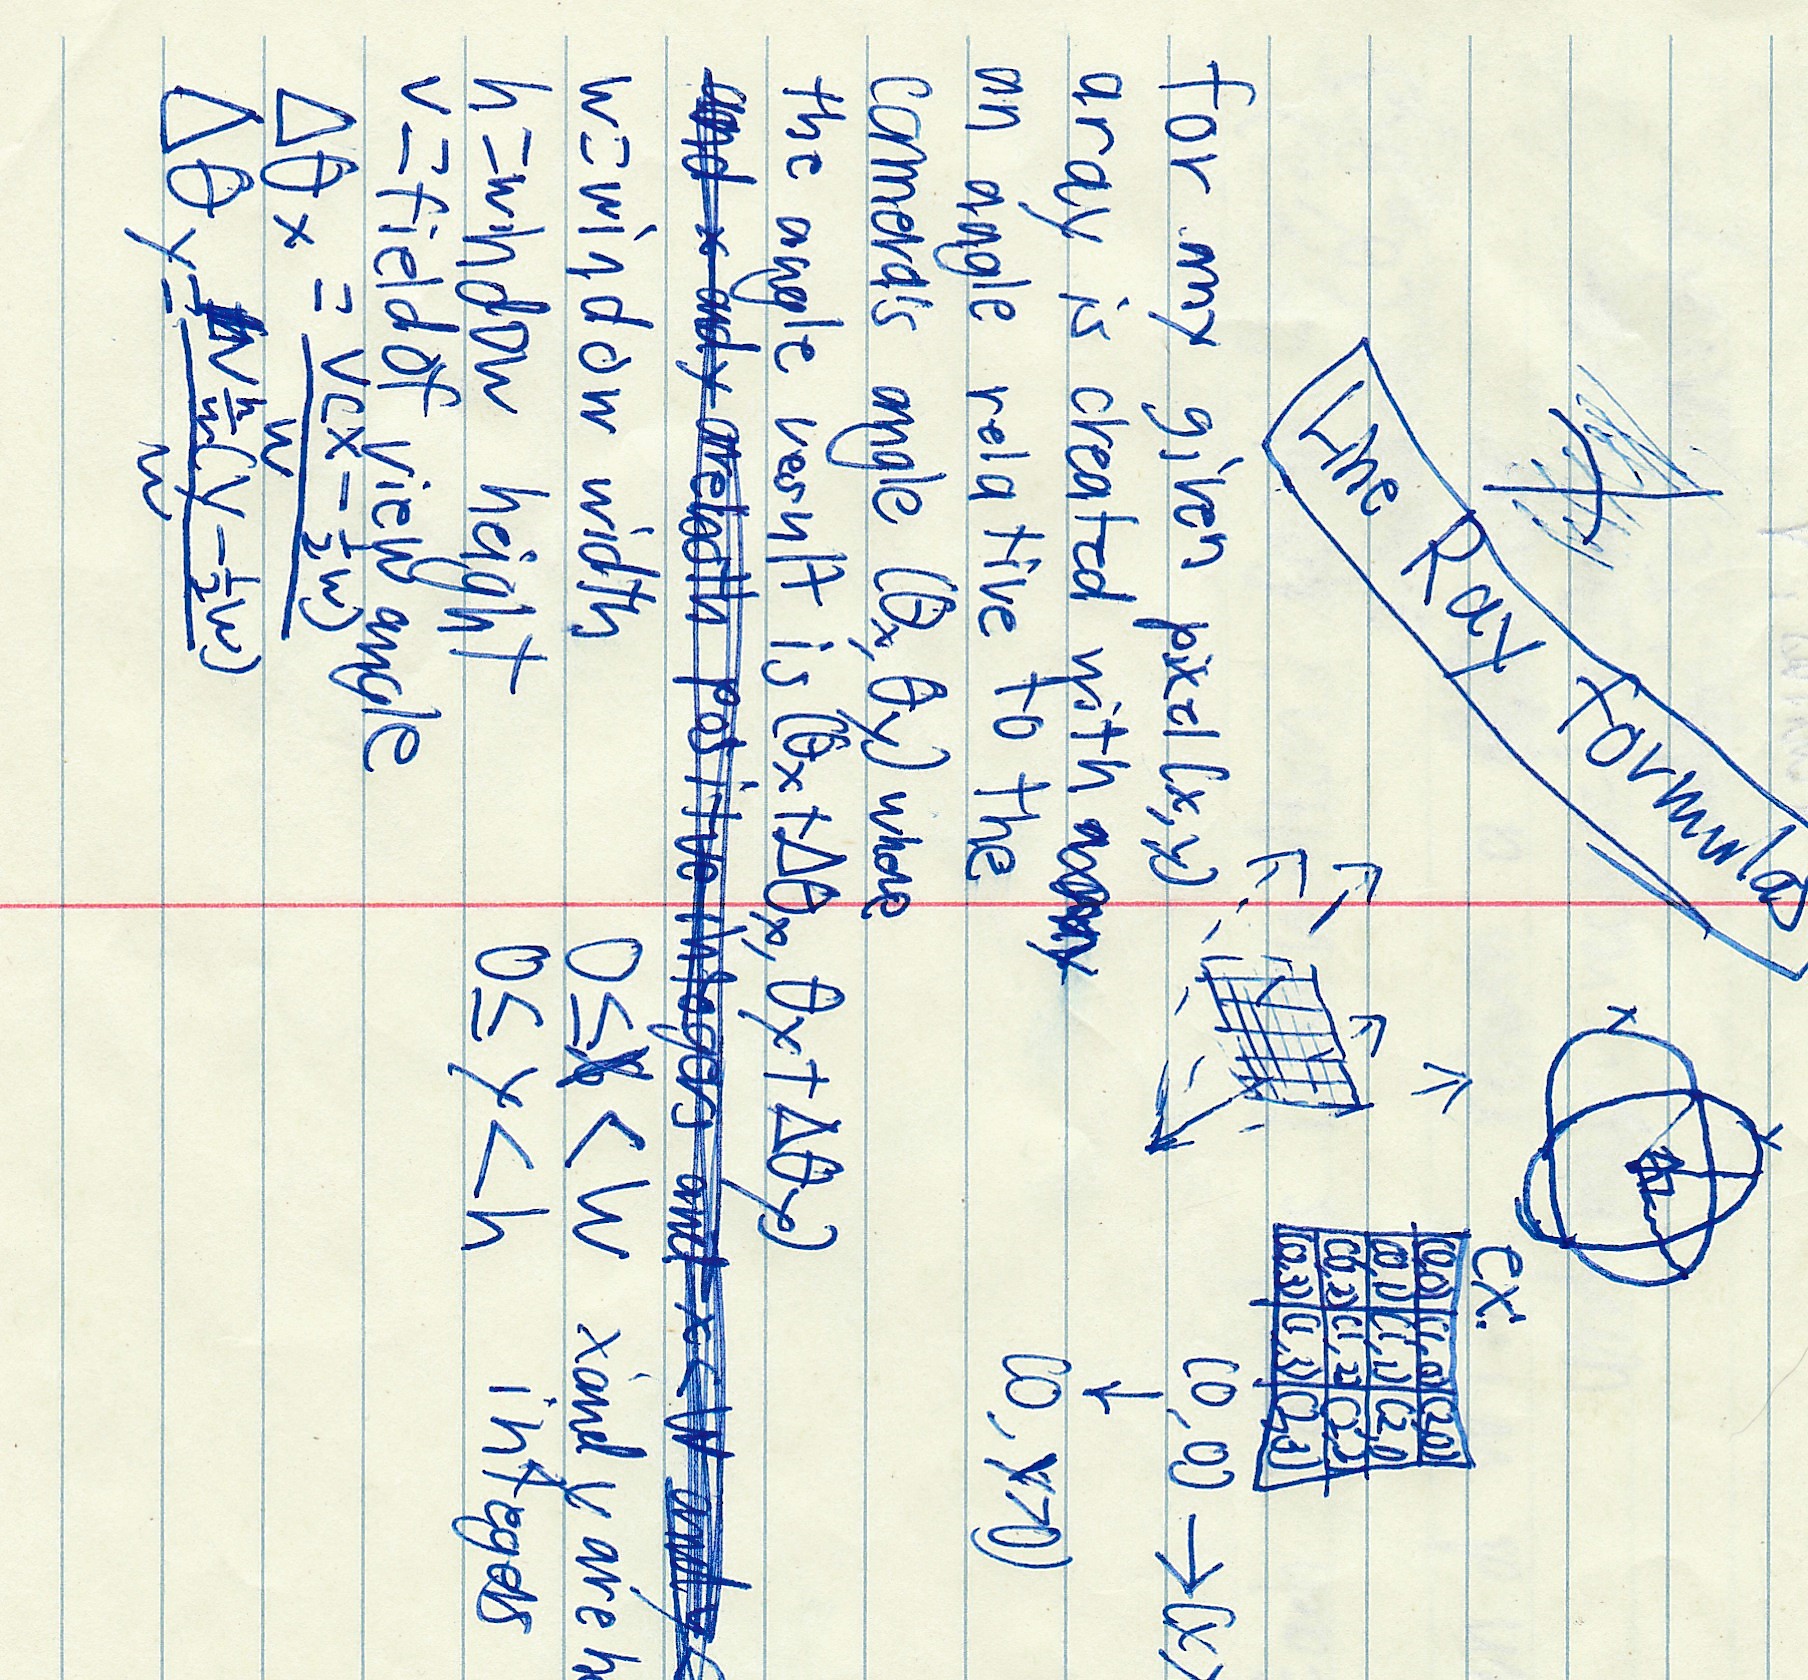 Line Ray Formulas
Y
X
ex:
(0,0) (1,0) (2,0)
(0,1) (1,1) (2,1)
(0,2) (1,2) (2,2)
(0,3) (1,3) (2,3)
(0,0) → (x>
↓
(0, y>0)
for any given pixel (x,y)
a ray is created with
an angle relative to the
camera's angle (θx, θy) where
the angle result is (θx+Δθx, θy+Δθy)
and x and y are both positive integers and x < W and y <
w=window width
0≤x<W x and y are
h=window height
0≤y<h integers
v=field of view angle
Δθx = v(x-½w)/w
Δθy = v h/w (y-½w)/w